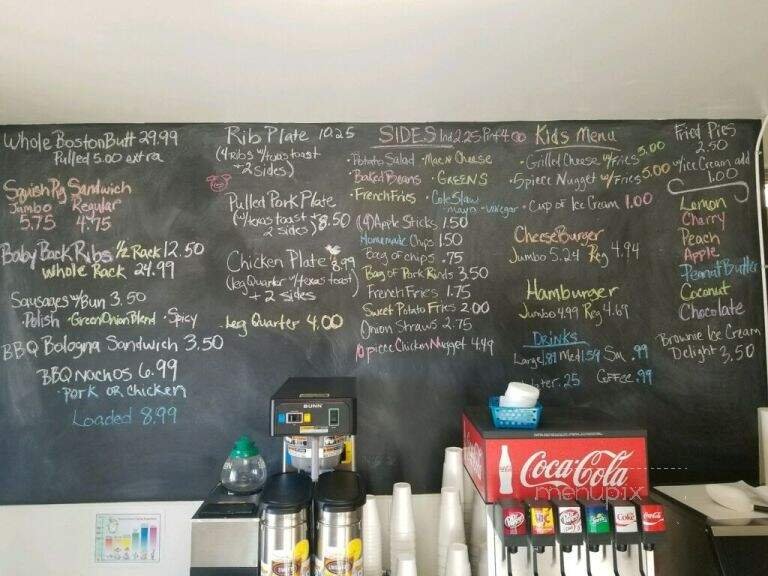 Whole Boston Butt 29.99
Pulled 5.00 extra
Squish Pig Sandwich
Jumbo Regular
5.75 4.75
Baby Back Ribs 1/2 Rack 12.50
Whole Rack 24.99
Sausages w/Bun 3.50
·Polish ·Green Onion Blend ·Spicy
BBQ Bologna Sandwich 3.50
BBQ Nachos 6.99
·Pork or Chicken
Loaded 8.99
Rib Plate 10.25
(4 Ribs w/texas toast
+ 2 sides)
Pulled Pork Plate
(w/texas toast + 8.50
2 sides)
Chicken Plate 8.99
(leg Quarter w/texas toast)
+ 2 sides
·Leg Quarter 4.00
SIDES Ind 2.25 Pint 4.00
·Potato Salad ·Mac n Cheese
·Baked Beans ·GREENS
·French Fries ·Cole Slaw
mayo ·vinegar
(4) Apple Sticks 1.50
Homemade Chips 1.50
Bag of chips .75
Bag of Pork Rinds 3.50
French Fries 1.75
Sweet Potato Fries 2.00
Onion Straws 2.75
10 piece Chicken Nugget 4.49
Kids Menu
·Grilled Cheese w/Fries 5.00
·5 piece Nugget w/Fries 5.00
·Cup of Ice Cream 1.00
Cheese Burger
Jumbo 5.24 Reg 4.94
Hamburger
Jumbo 4.99 Reg 4.69
DRINKS
Large 1.89 Med 1.59 Sm .99
.25 Coffee .99
Fried Pies
2.50
w/Ice Cream add
1.00
Lemon
Cherry
Peach
Apple
Peanut Butter
Coconut
Chocolate
Brownie Ice Cream
Delight 3.50
BUNN
Coca-Cola
menupix
Dr Pepper
Dr Pepper
Sprite
Coke
Coca-Cola